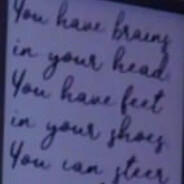 You have brains
in your head
You have feet
in your shoes
You can steer